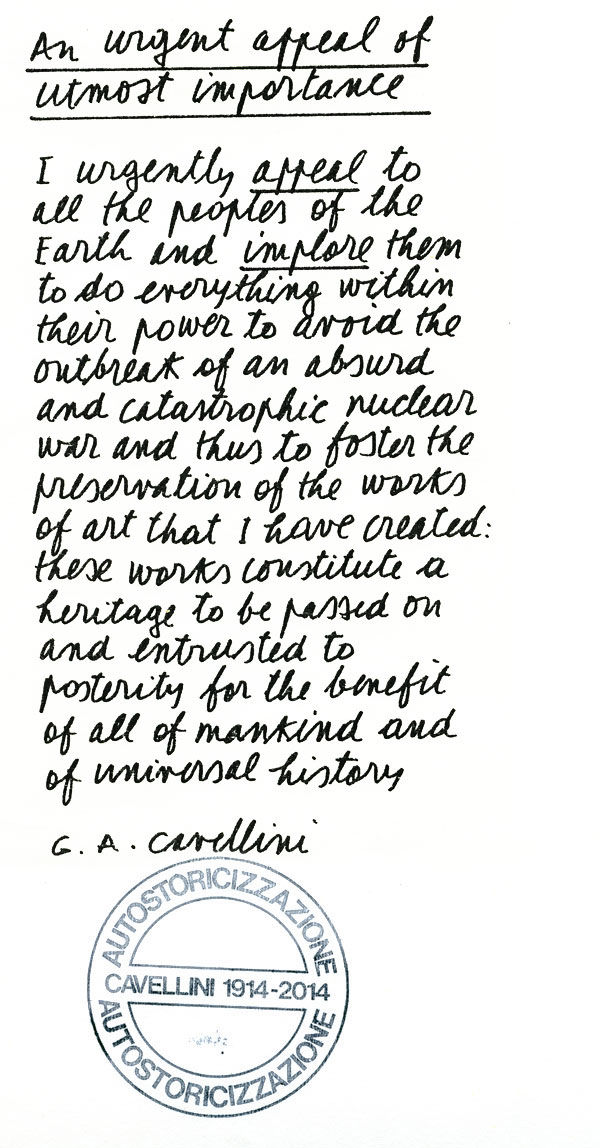 An urgent appeal of
utmost importance
I urgently appeal to
all the peoples of the
Earth and implore them
to do everything within
their power to avoid the
outbreak of an absurd
and catastrophic nuclear
war and thus to foster the
preservation of the works
of art that I have created:
these works constitute a
heritage to be passed on
and entrusted to
posterity for the benefit
of all of mankind and
of universal history
G. A. Cavellini
AUTOSTORICIZZAZIONE
CAVELLINI 1914-2014
AUTOSTORICIZZAZIONE